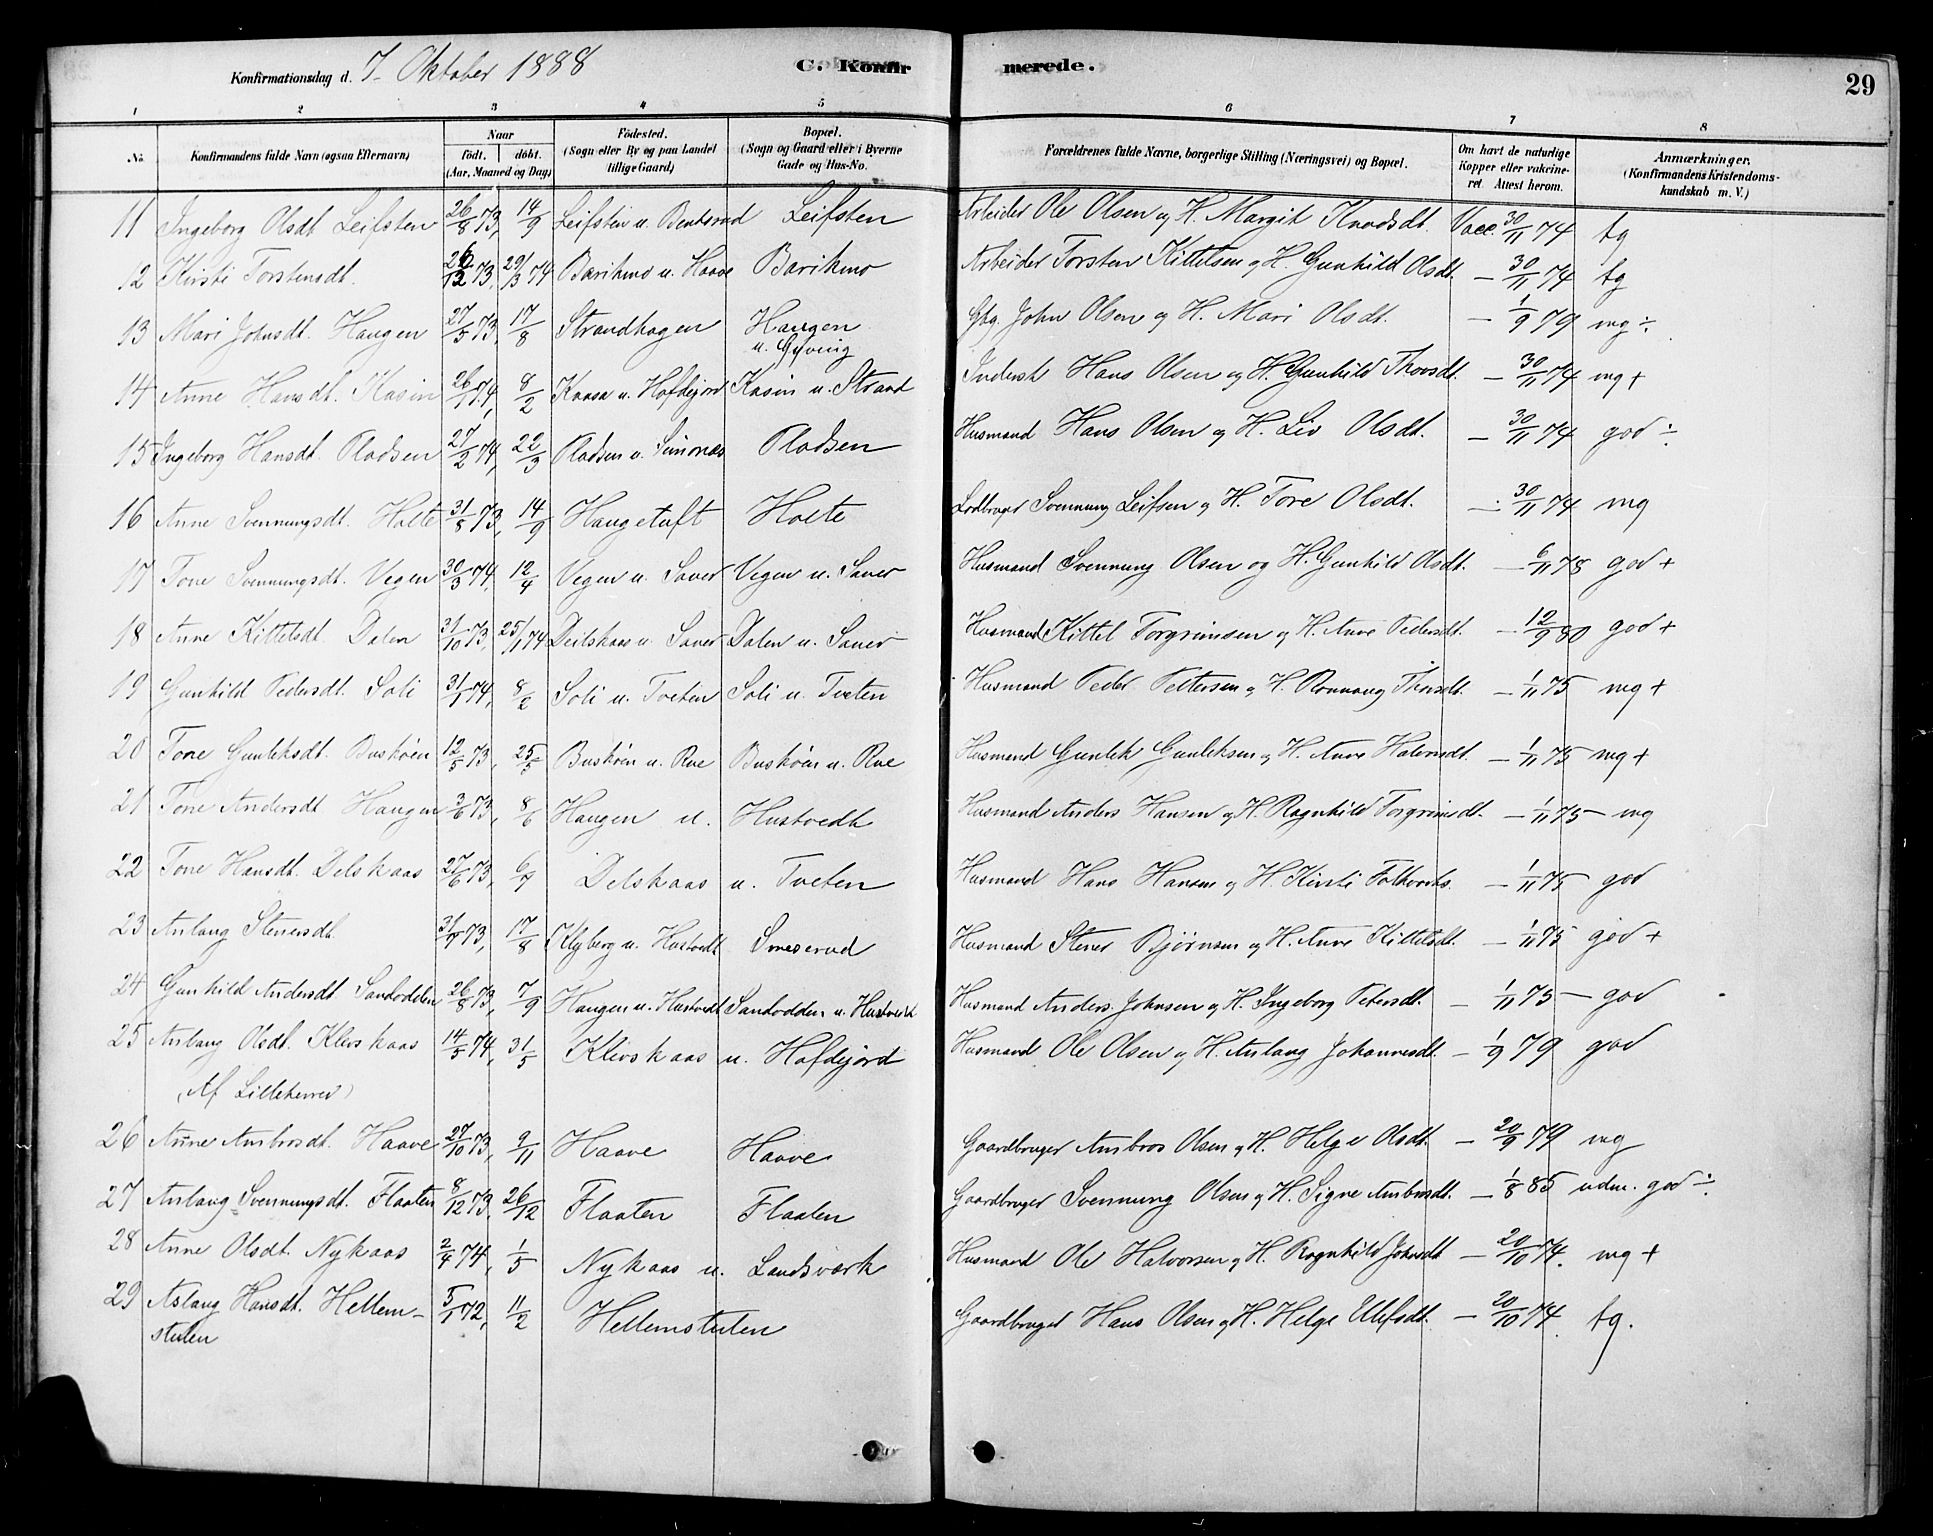 Konfirmationsdag d. 7. Oktober 1888 C. Konfirmerede. 29
1 2 3 4 5 6 7 8
No. Konfirmandens fulde Navn (ogsaa Efternavn) Naar födt. döbt. (Aar, Maaned og Dag) Födested. (Sogn eller By og paa Landet tillige Gaard) Bopæl. (Sogn og Gaard eller i Byerne Gade og Hus-No. Forældrenes fulde Navne, borgerlige Stilling (Næringsvei) og Bopæl. Om havt de naturlige Kopper eller vakcineret. Attest herom. Anmærkninger. (Konfirmandens Kristendomskundskab m. V.)
11 Ingeborg Olsdt. Leifsten 26/8 73, 14/9 Leifsten u. Bentsrud Leifsten Arbeider Ole Olsen og H. Margit Knudsdt. Vacc. 30/11 74 tg
12 Kirsti Torstensdt. 26/12 73, 29/3 74 Barikmo u. Haave Barikmo Arbeider Torsten Kittelsen og H. Gunhild Olsdt. — 30/11 74 tg
13 Mari Johnsdt. Haugen 27/5 73, 17/8 Strandhagen Haugen u. Gjving Gbg. John Olsen og H. Mari Olsdt. — 1/9 79 mg ÷
14 Anne Hansdt. Kasin 26/1 74, 8/2 Kaasa u. Hofdejord Kasin u. Strand Inderst Hans Olsen og H. Gunhild Thovsdt. — 30/11 74 mg +
15 Ingeborg Hansdt. Pladsen 27/2 74, 22/3 Pladsen u. Simones Pladsen Husmand Hans Olsen og H. Liv Olsdt. — 30/11 74 god ÷
16 Anne Svennungsdt. Holte 31/8 73, 14/9 Haugetuft Holte Lodbruger Svennung Leifsen og H. Tore Olsdt. — 30/11 74 mg
17 Tone Svennungsdt. Vegen 30/3 74, 12/4 Vegen u. Sauer Vegen u. Sauer Husmand Svennung Olsen og H. Gunhild Olsdt. — 6/11 78 god +
18 Anne Kittelsdt. Dalen 31/10 73, 25/1 74 Deilskaas u. Sauer Dalen u. Sauer Husmand Kittel Torgrimsen og H. Anne Pedersdt. — 12/9 80 god +
19 Gunhild Pedersdt. Soli 31/1 74, 8/2 Soli u. Tveten Soli u. Tveten Husmand Peder Pettersen og H. Rannaug Thorsdt. — 1/11 75 mg +
20 Tone Gunleksdt. Busköen 12/5 73, 25/5 Busköen u. Rue Busköen u. Rue Husmand Gunlek Gunleksen og H. Anne Halvorsdt. — 1/11 75 mg +
21 Tone Andersdt. Haugen 3/6 73, 8/6 Haugen u. Hustvedt Husmand Anders Hansen og H. Ragnhild Torgrimsdt. — 1/11 75 — mg
22 Tone Hansdt. Delskaas 27/6 73, 6/7 Delskaas u. Tveten Husmand Hans Hansen og H. Kirsti Folkvords. — 1/11 75 god
23 Aslaug Stenersdt. 31/7 73, 17/8 Klyberg u. Hustvedt Smeserud Husmand Stener Bjørnsen og H. Anne Kittelsdt. — 1/11 75 god +
24 Gunhild Andersdt. Sandodden 26/8 73, 7/9 Haugen u. Hustvedt Sandodden u. Hustvedt Husmand Anders Johnsen og H. Ingeborg Petersdt. — 1/11 75 — god
25 Aslaug Olsdt. Klevskaas 14/5 74, 31/5 Klevskaas u. Hofdejord Husmand Ole Olsen og H. Aslaug Johannesdt. — 1/9 79 god
(Af Lilleherred)
26 Anne Ambrosdt. Haave 27/10 73, 9/11 Haave Haave Gaardbruger Ambros Olsen og H. Helge Olsdt. — 20/9 79 mg
27 Aslaug Svennungsdt. Flaaten 8/12 73, 26/12 Flaaten Flaaten Gaardbruger Svennung Olsen og H. Signe Ambrosdt. — 1/8 85 udm. god ÷
28 Anne Olsdt. Nykaas 2/4 74, 1/5 Nykaas u. Landsværk Husmand Ole Halvorsen og H. Ragnhild Johnsdt. — 20/10 74. mg +
29 Aslaug Hansdt. Hellem- 5/1 72, 11/2 Hellemstulen Gaardbruger Hans Olsen og H. Helge Ulefsdt. — 20/10 74. tg.
stulen